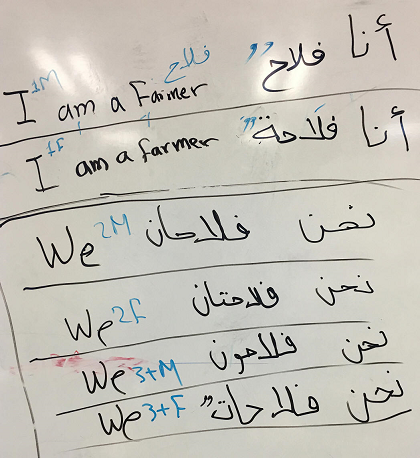 I 1M am a Farmer فلاح أنا فلاحٌ
I 1F am a farmer أنا فلَاحةٌ
We 2M نحن فلاحان
We 2F نحن فلاحتان
We 3+M نحن فلاحون
We 3+F نحن فلاحاتٌ